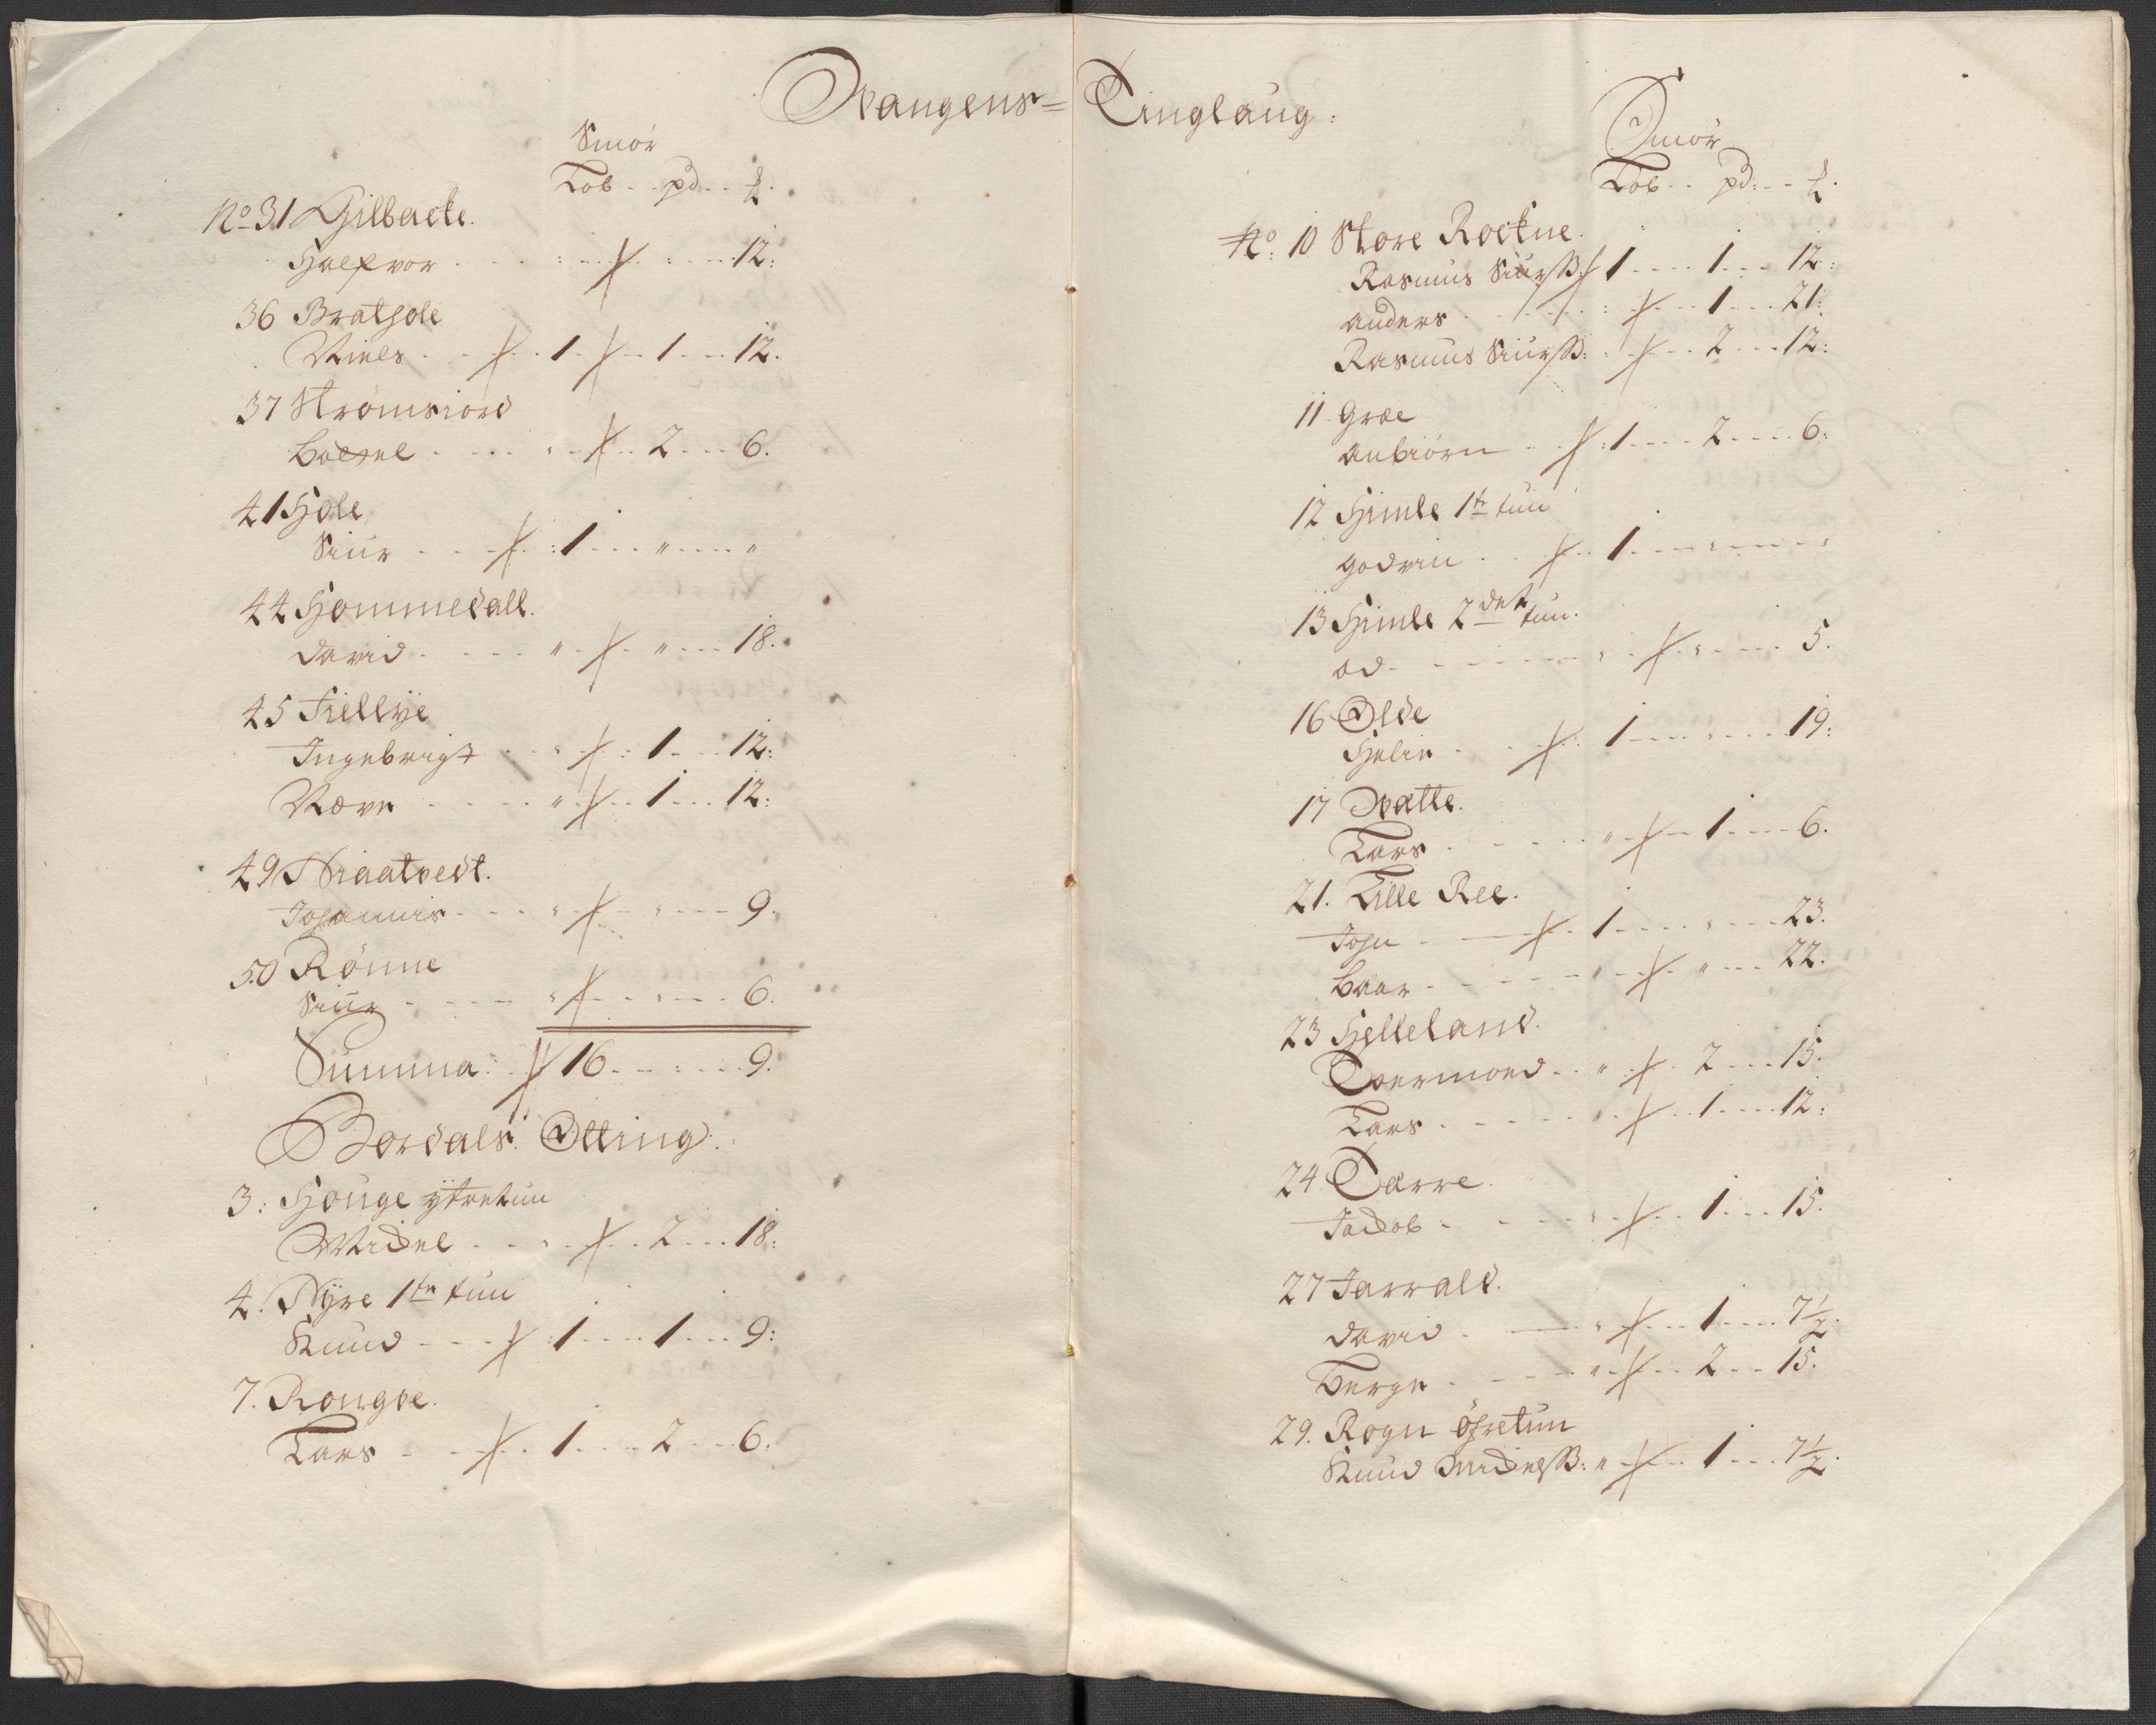 Wangens= Tinglaug:
Smör
Löb - - pd - - ℔.
No 31 Gilbacke.
Halfvor - - - - - 12:
36 Brathole
Niels - - 1 - - 1 - - 12.
37 Strömsiord
Botzel - - - - 2 - - 6.
41 Hole
Siur - - - 1 - - " - - "
44 Hommedall.
David - - - " - - " - - 18.
45 Fiellÿe
Ingebrigt - - " - - 1 - - 12:
Næve - - - " - - 1 - - 12:
49 Skaatvedt.
Johannis - - - " - - " - - 9.
50 Rönne
Siur - - - " - - " - - 6.
Summa: 16 - - : - - 9.
Bordals Otting:
3: Houge ÿtretun
Michel - - " - - 2 - - 18:
4. Nÿre 1te tun
Knud - - - 1 - - 1 - - 9:
7. Rongve.
Lars - - 1 - - 2 - - 6.
Smör
Löb - - pd: - - ℔.
No: 10 Store Rockne.
Rasmus Siurss: 1 - - 1 - - 12:
Anders - - - : - - 1 - - 21:
Rasmus Siurss: : - - 2 - - 12:
11. Græe
Anbiörn - - : 1 - - 2 - - 6:
12 Himle 1te tun
Godvin - - 1 - - " - - "
13 Himle 2det tun.
Od - - - - " - - " - - 5.
16 Olde
Helie - - 1 - - " - - 19:
17 Wætte.
Lars - - - " - - 1 - - 6.
21. Lille Ree.
John - - 1 - - " - - 23.
Baar - - - " - - " - - 22.
23 Helleland.
Tormoed - - " - - 2 - - 15.
Lars - - - " - - 1 - - 12:
24 Dærre.
Jacob - - - " - - 1 - - 15.
27 Jarrald.
David - - " - - 1 - - 7½.
Berge - - - " - - 2 - - 15.
29. Rogn öfretun
Knud Michelss: " - - 1 - - 7½.